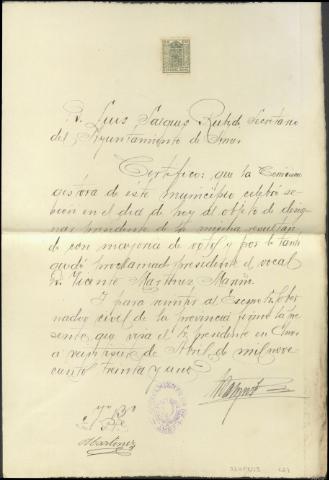 D. Luis Rubid, Secretario
del Ayuntamiento de
Certifico: que la Comision
gestora de este municipio celebró se-
sión en el dia de hoy al objeto de desig-
nar presidente de la misma resultan-
do con mayoria de votos y por lo tanto
quedó proclamado presidente el vocal
D. Vicente Martinez
Y para remitir al Excmo Sr. Gober-
nador civil de la provincia firmo la pre-
sente que visa el Sr. presidente en
a veintinueve de Abril de mil nove-
cientos treinta y uno
Vº Bº
El Pte
Martinez